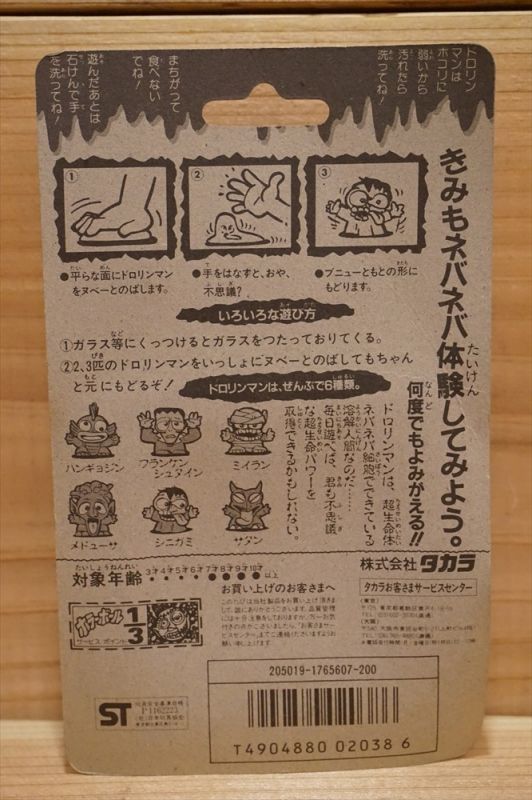 ドロリン
マンは
ホコリに
弱いから
汚れたら
洗ってね!
まちがって
食べない
でね!
遊んだあとは
石けんで手
を洗ってね!
きみもネバネバ体験してみよう。
何度でもよみがえる!!
①
②
③
●平らな面にドロリンマン
をヌベーとのばします。
●手をはなすと、おや、
不思議?
●ブニューともとの形に
もどります。
いろいろな遊び方
①ガラス等にくっつけるとガラスをつたっておりてくる。
②2、3匹のドロリンマンをいっしょにヌベーとのばしてもちゃん
と元にもどるぞ!
ドロリンマンは、ぜんぶで6種類。
ハンギョジン
フランケン
シュタイン
ミイラン
メドューサ
シニガミ
サタン
ドロリンマンは、超生命体
ネバネバ細胞でできている
溶解人間なのだ……
毎日遊べば、君も不思議
な超生命パワーを
取得できるかもしれない。
対象年齢
3才4才5才6才7才8才9才10才以上
株式会社タカラ
タカラお客さまサービスセンター
お買い上げのお客さまへ
サービス ポイント
1/3
ST
205019-1765607-200
T4904880 02038 6